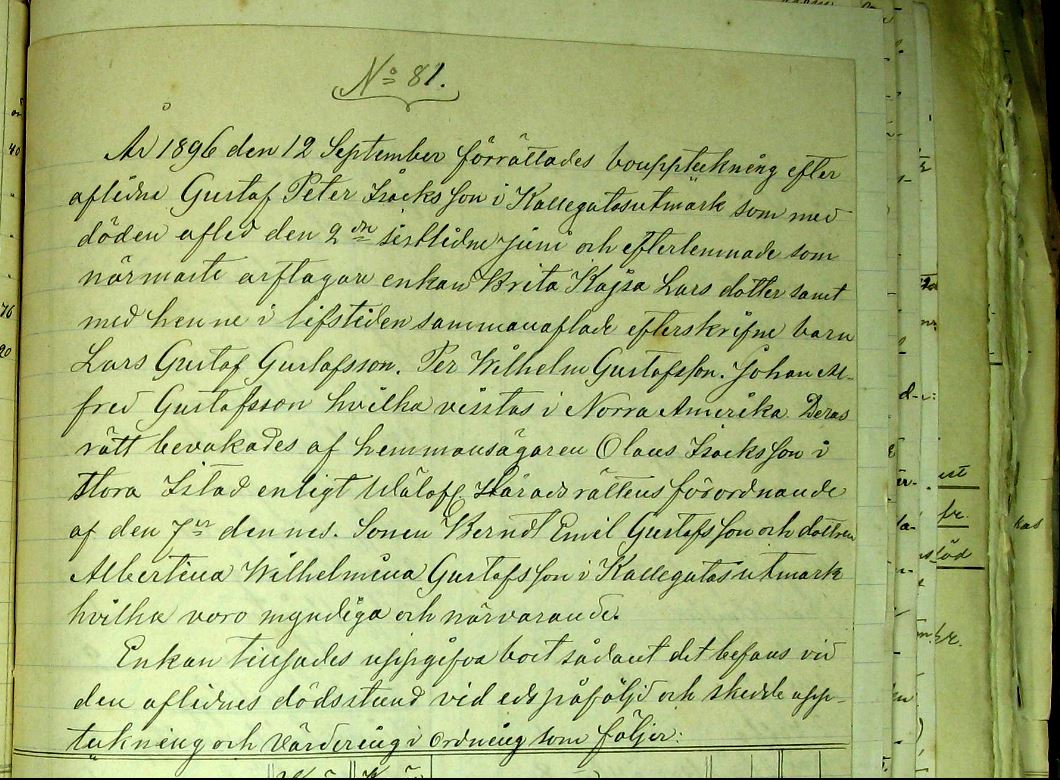 No 81.
År 1896 den 12 September förrättades bouppteckning efter
aflidne Gustaf Peter Isacksson i Kallegatasutmark som med
döden afled den 2dre sistlidne Juni och efterlemnade som
närmaste arftagare enkan Brita Kajsa Lars dotter samt
med henne i lifstiden sammanaflade efterskrifne barn
Lars Gustaf Gustafsson. Per Wilhelm Gustafsson. Johan Al-
fred Gustafsson hvilka vistas i Norra Amerika Deras
rätt bevakades af hemmansägaren Olaus Isacksson i
Stora Istad enligt Häradsrättens förordnande
af den 7de dennes. Sonen Berndt Emil Gustafsson och dottren
Albertina Wilhelmina Gustafsson i Kallegatasutmark
hvilka voro myndiga och närvarande.
Enkan tillsades uppgifva boet sådant det befans vid
den aflidnes dödsstund vid edspåföljd och skedde upp-
teckning och värdering i ordning som följer:
40
76
20
kas